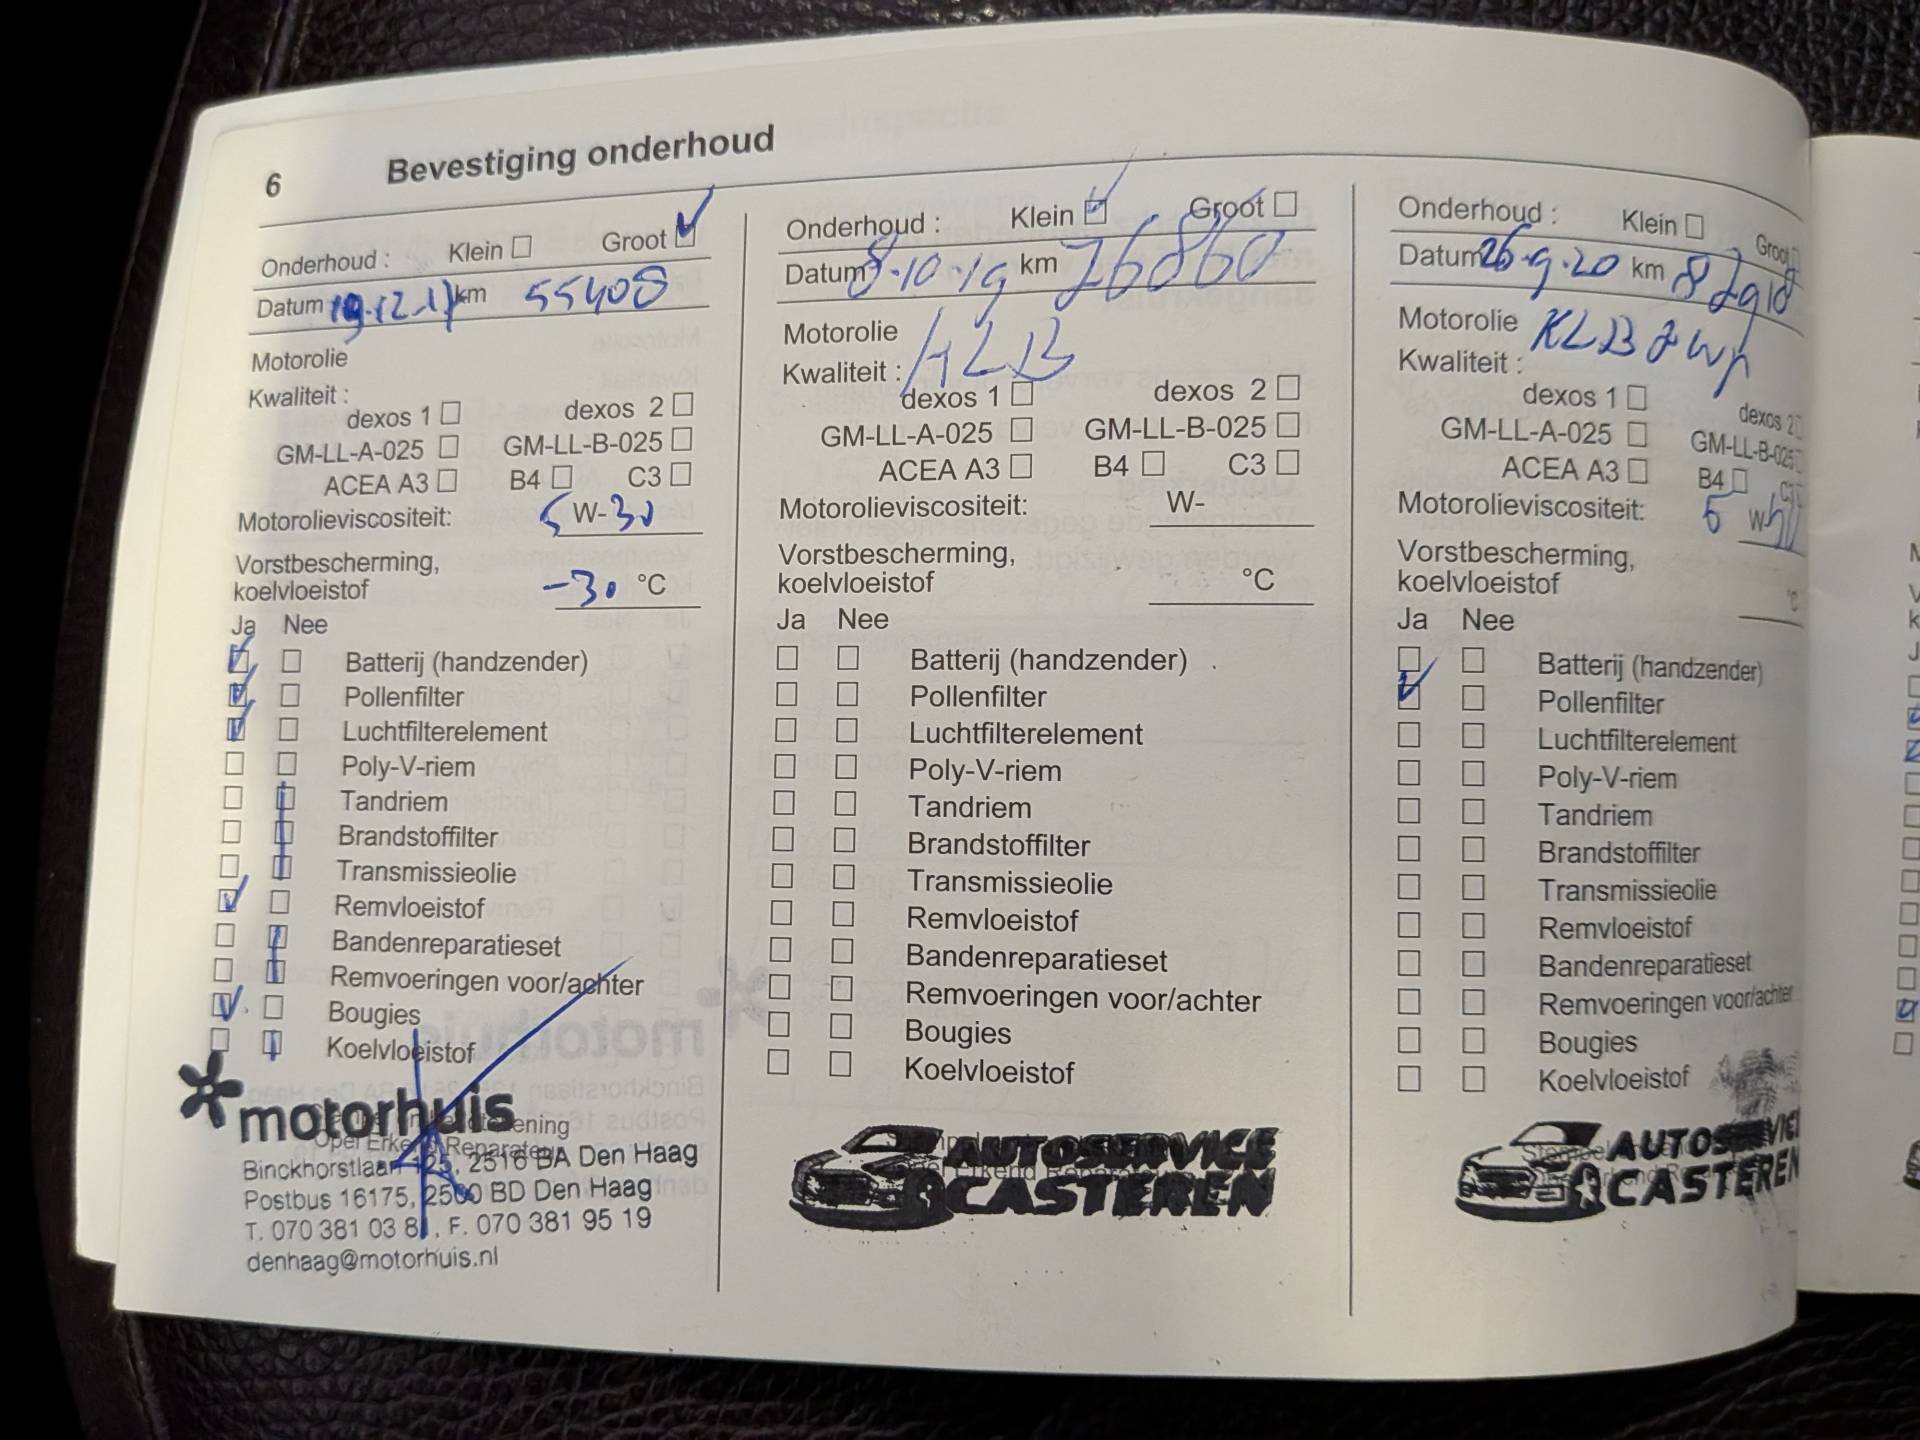 6 Bevestiging onderhoud
Onderhoud : Klein Groot
Datum km 55408
Motorolie
Kwaliteit :
dexos 1 dexos 2
GM-LL-A-025 GM-LL-B-025
ACEA A3 B4 C3
Motorolieviscositeit: 5 W-30
Vorstbescherming,
koelvloeistof -30 °C
Ja Nee
Batterij (handzender)
Pollenfilter
Luchtfilterelement
Poly-V-riem
Tandriem
Brandstoffilter
Transmissieolie
Remvloeistof
Bandenreparatieset
Remvoeringen voor/achter
Bougies
Koelvloeistof
motorhuis
Opel Erkend Reparateur
Binckhorstlaan 125, 2516 BA Den Haag
Postbus 16175, 2500 BD Den Haag
T. 070 381 03 81, F. 070 381 95 19
denhaag@motorhuis.nl
Onderhoud : Klein Groot
Datum 8-10-19 km 76860
Motorolie
Kwaliteit : KLB
dexos 1 dexos 2
GM-LL-A-025 GM-LL-B-025
ACEA A3 B4 C3
Motorolieviscositeit: W-
Vorstbescherming,
koelvloeistof °C
Ja Nee
Batterij (handzender)
Pollenfilter
Luchtfilterelement
Poly-V-riem
Tandriem
Brandstoffilter
Transmissieolie
Remvloeistof
Bandenreparatieset
Remvoeringen voor/achter
Bougies
Koelvloeistof
AUTOSERVICE
CASTEREN
Onderhoud : Klein Groot
Datum 26-9-20 km
Motorolie KLB
Kwaliteit :
dexos 1 dexos 2
GM-LL-A-025 GM-LL-B-025
ACEA A3 B4 C3
Motorolieviscositeit: 5 W
Vorstbescherming,
koelvloeistof °C
Ja Nee
Batterij (handzender)
Pollenfilter
Luchtfilterelement
Poly-V-riem
Tandriem
Brandstoffilter
Transmissieolie
Remvloeistof
Bandenreparatieset
Remvoeringen voor/achter
Bougies
Koelvloeistof
AUTOSERVICE
CASTEREN